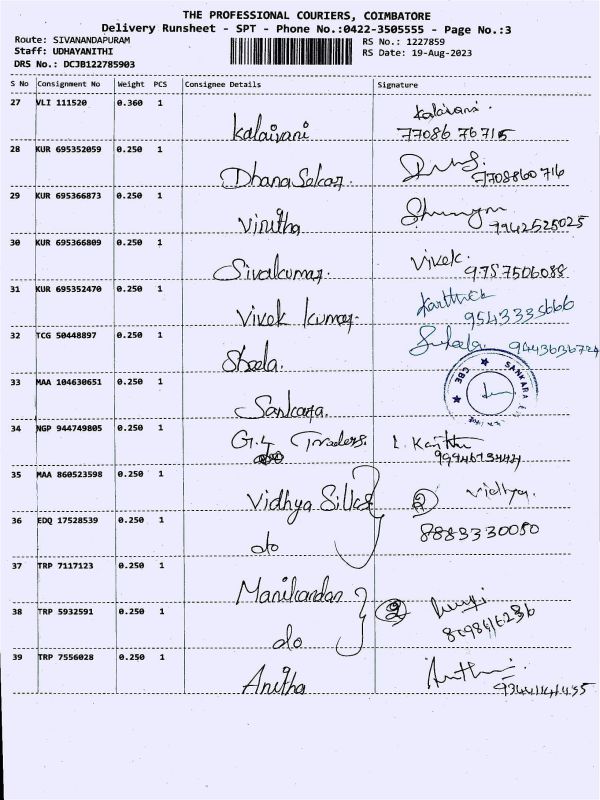 THE PROFESSIONAL COURIERS, COIMBATORE
Delivery Runsheet - SPT - Phone No.:0422-3505555 - Page No.:3
Route: SIVANANDAPURAM RS No.: 1227859
Staff: UDHAYANITHI RS Date: 19-Aug-2023
DRS No.: DCJB122785903
S No Consignment No Weight PCS Consignee Details Signature
27 VLI 111520 0.360 1 Kalaivani Kalaivani.
77086 76715
28 KUR 695352059 0.250 1 Dhana Sekar.
7708860716
29 KUR 695366873 0.250 1 Vinitha
9942525025
30 KUR 695366809 0.250 1 Sivakumar. Vivek.
9787506088
31 KUR 695352470 0.250 1 Vivek Kumar. Karthick
9543335666
32 TCG 50448897 0.250 1 Sheela. 9443636724
33 MAA 104630651 0.250 1 Sankara. SANKARA
CBE
34 NGP 944749805 0.250 1 G.4 Traders.
35 MAA 860523598 0.250 1 Vidhya Silks 2 Vidhya.
36 EDQ 17528539 0.250 1 do 8883330080
37 TRP 7117123 0.250 1 Manikandan
38 TRP 5932591 0.250 1 do 2
39 TRP 7556028 0.250 1 Anitha